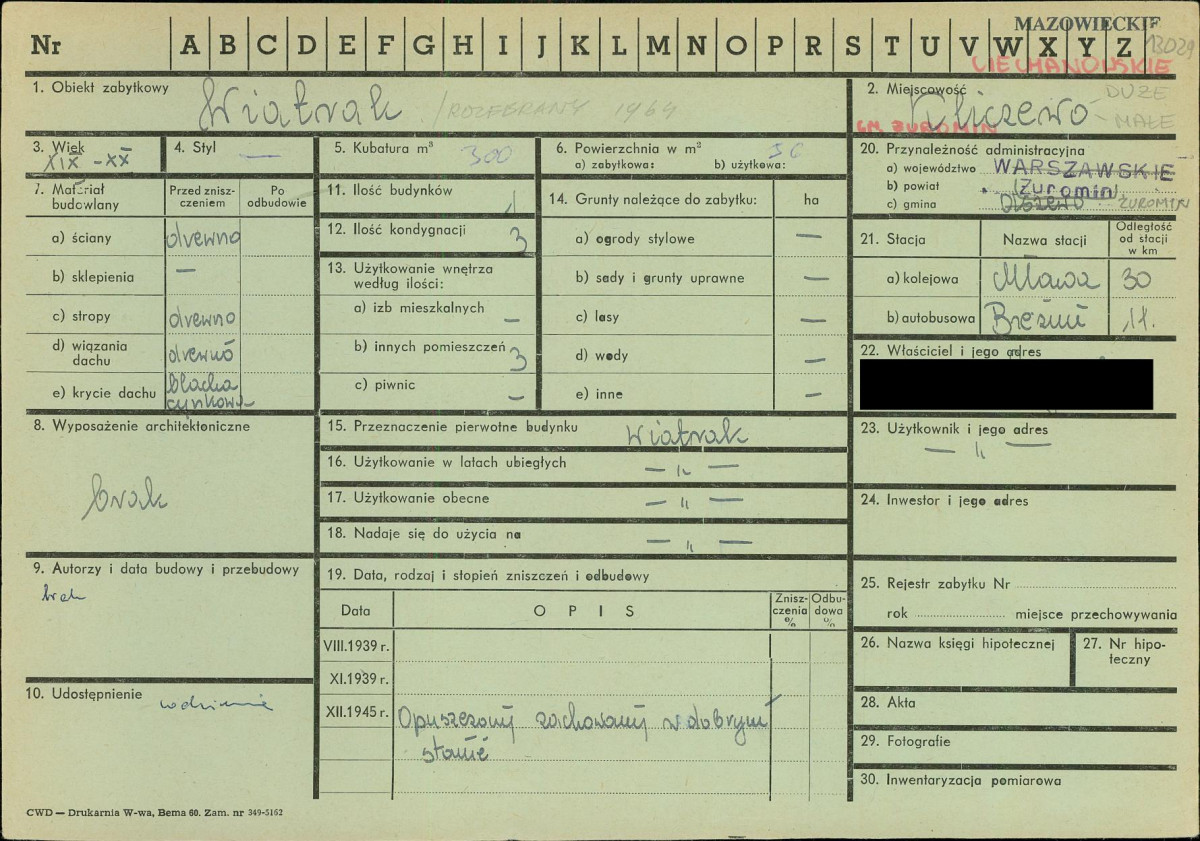 Nr A B C D E F G H I J K L M N O P R S T U V W X Y Z
MAZOWIECKIE
13029
CIECHANOWSKIE
1. Obiekt zabytkowy Wiatrak /ROZEBRANY 1964
2. Miejscowość Chliczewo - DUŻE
- MAŁE
GM. ŻUROMIN
3. Wiek XIX - XX
4. Styl —
5. Kubatura m³ 300
6. Powierzchnia w m²
a) zabytkowa: b) użytkowa: 36
7. Materiał budowlany
Przed zniszczeniem
Po odbudowie
a) ściany drewno
b) sklepienia —
c) stropy drewno
d) wiązania dachu drewno
e) krycie dachu blacha cynkowa
8. Wyposażenie architektoniczne
brak
9. Autorzy i data budowy i przebudowy
brak
10. Udostępnienie codziennie
11. Ilość budynków 1
12. Ilość kondygnacji 3
13. Użytkowanie wnętrza
według ilości:
a) izb mieszkalnych —
b) innych pomieszczeń 3
c) piwnic —
14. Grunty należące do zabytku: ha
a) ogrody stylowe —
b) sady i grunty uprawne —
c) lasy —
d) wody —
e) inne —
15. Przeznaczenie pierwotne budynku Wiatrak
16. Użytkowanie w latach ubiegłych — „ —
17. Użytkowanie obecne — „ —
18. Nadaje się do użycia na — „ —
19. Data, rodzaj i stopień zniszczeń i odbudowy
Data OPIS Zniszczenia % Odbudowa %
VIII.1939 r.
XI.1939 r.
XII.1945 r. Opuszczony zachowany w dobrym
stanie
20. Przynależność administracyjna
a) województwo WARSZAWSKIE
b) powiat (Żuromin)
c) gmina ŻUROMIN
21. Stacja Nazwa stacji Odległość od stacji w km
a) kolejowa Mława 30
b) autobusowa Bieżuń 11.
22. Właściciel i jego adres
23. Użytkownik i jego adres
— „ —
24. Inwestor i jego adres
25. Rejestr zabytku Nr
rok miejsce przechowywania
26. Nazwa księgi hipotecznej
27. Nr hipoteczny
28. Akta
29. Fotografie
30. Inwentaryzacja pomiarowa
CWD — Drukarnia W-wa, Bema 60. Zam. nr 349-5162